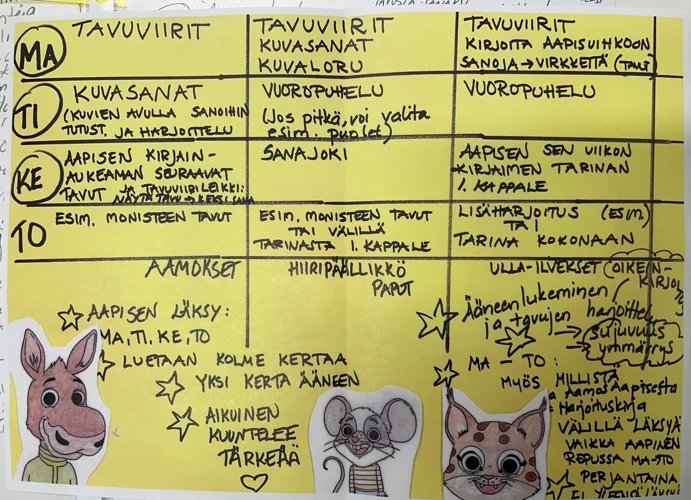 MA
TAVUVIIRIT
TAVUVIIRIT
KUVASANAT
KUVALORU
TAVUVIIRIT
KIRJOITA AAPISVIHKOON
SANOJA → VIRKKEITÄ (TAVUT)
TI
KUVASANAT
(KUVIEN AVULLA SANOIHIN
TUTUST. JA HARJOITTELU
VUOROPUHELU
(Jos pitkä, voi valita
esim. puolet)
VUOROPUHELU
KE
AAPISEN KIRJAIN-
AUKEAMAN SEURAAVAT
TAVUT JA TAVUVIIRILEIKKI:
NÄYTÄ TAVU → KEKSI SANA
SANAJOKI
AAPISEN SEN VIIKON
KIRJAIMEN TARINAN
1. KAPPALE
TO
ESIM. MONISTEEN TAVUT
ESIM. MONISTEEN TAVUT
TAI VÄLILLÄ
TARINASTA 1. KAPPALE
LISÄHARJOITUS (ESIM.)
TAI
TARINA KOKONAAN
AAMOKSET
HIIRIPÄÄLLIKKÖ
PAPUT
ULLA-ILVEKSET (OIKEIN-
KIRJOITUS
AAPISEN LÄKSY:
MA, TI, KE, TO
LUETAAN KOLME KERTAA
YKSI KERTA ÄÄNEEN
AIKUINEN
KUUNTELEE
TÄRKEÄÄ
Ääneen lukeminen
ja tavujen harjoittelu
→ sujuvuus
→ ymmärrys
MA – TO:
MYÖS MILLISTÄ
ja Aamos Aapisesta
Harjoituskirja
VÄLILLÄ LÄKSYÄ
VAIKKA AAPINEN
REPUSSA MA-TO
PERJANTAINA
EI